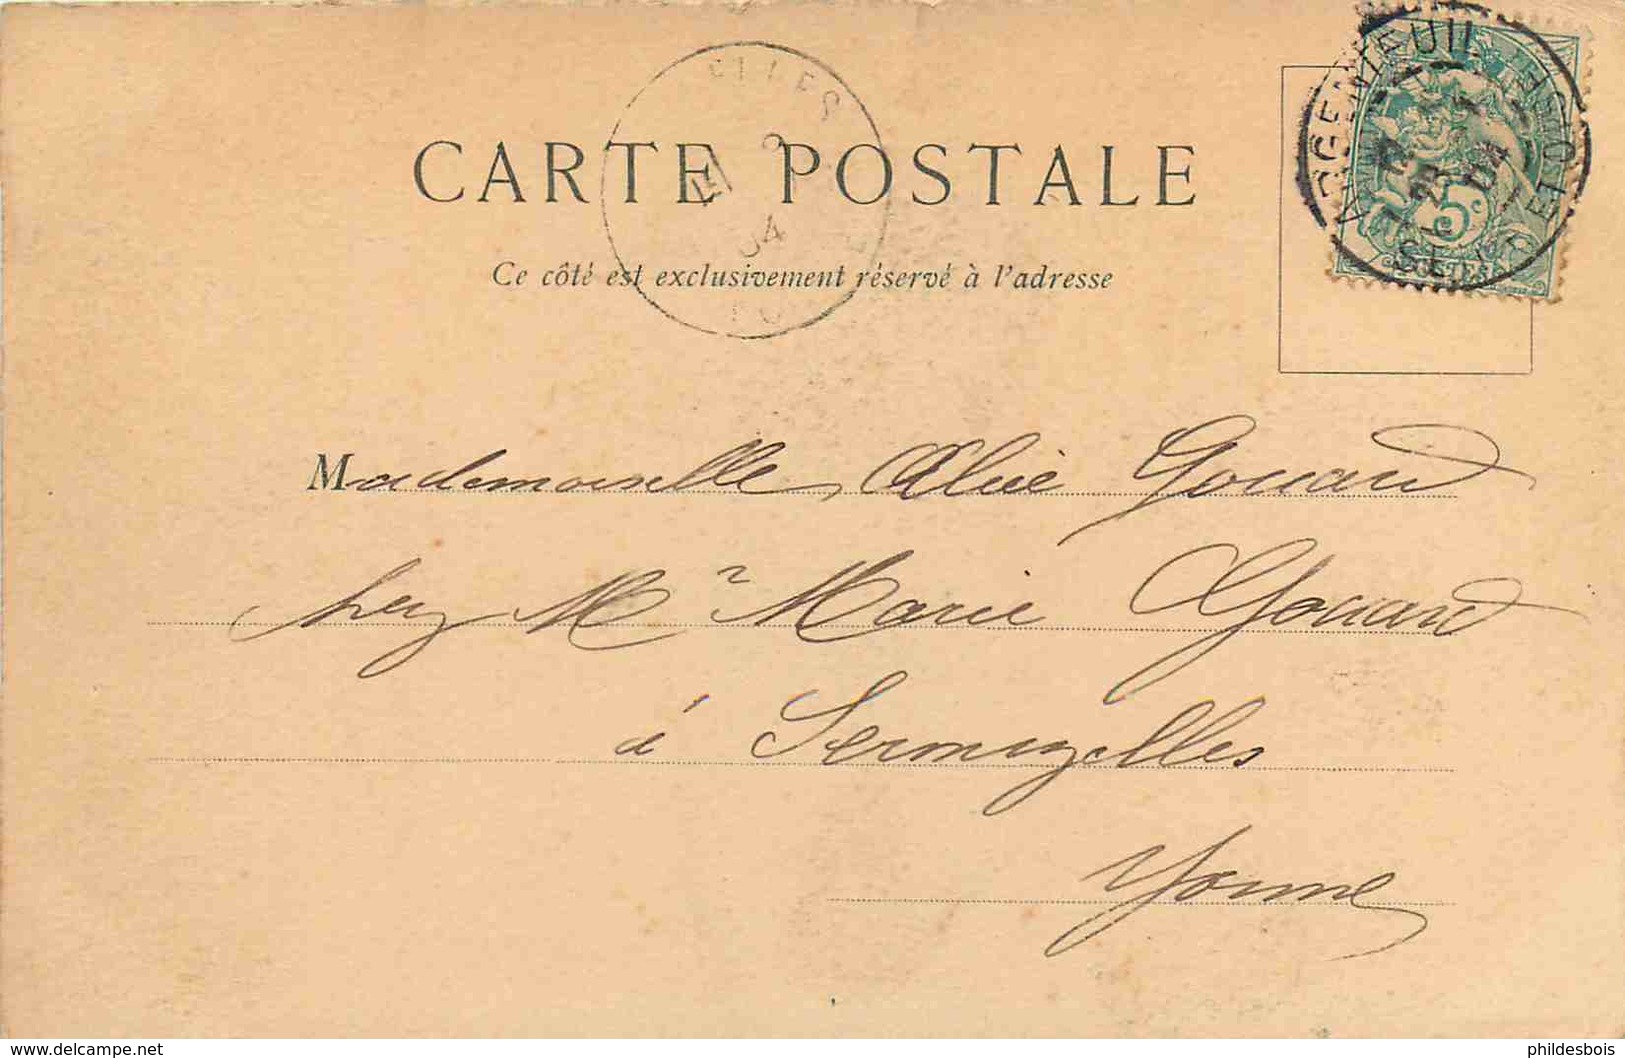 ELLES
04
CARTE POSTALE
Ce côté est exclusivement réservé à l'adresse
ARGENTEUIL
SEINE ET OISE
25
04
5c
POSTES
Mademoiselle Alice Gouard
chez Mr Marie Gouard
à Sermizelles
Yonne
www.delcampe.net
phildesbois